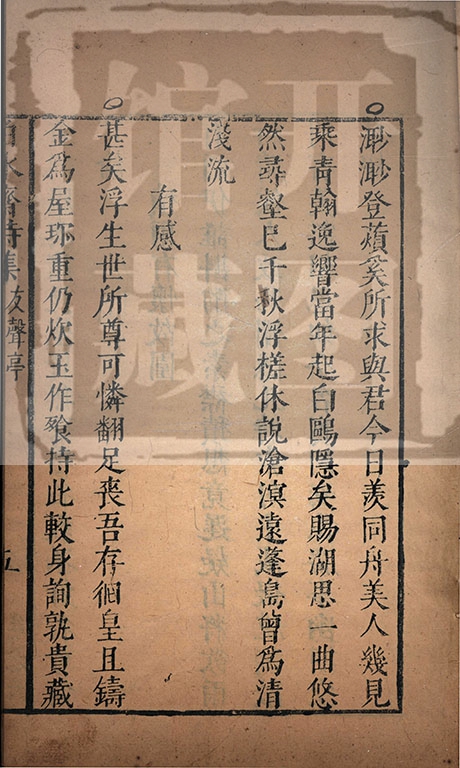 渺渺登蘋奚所求與君今日羨同舟美人幾見
乘青翰逸響當年起白鷗隱矣賜湖思一曲悠
然尋壑已千秋浮槎休說滄溟遠蓬島曾為清
淺流
有感
甚矣浮生世所尊可憐翻足喪吾存徊皇且鑄
金為屋珎重仍炊玉作飱持此較身詢孰貴藏
水齋詩集 友聲亭 五
开图
馆藏